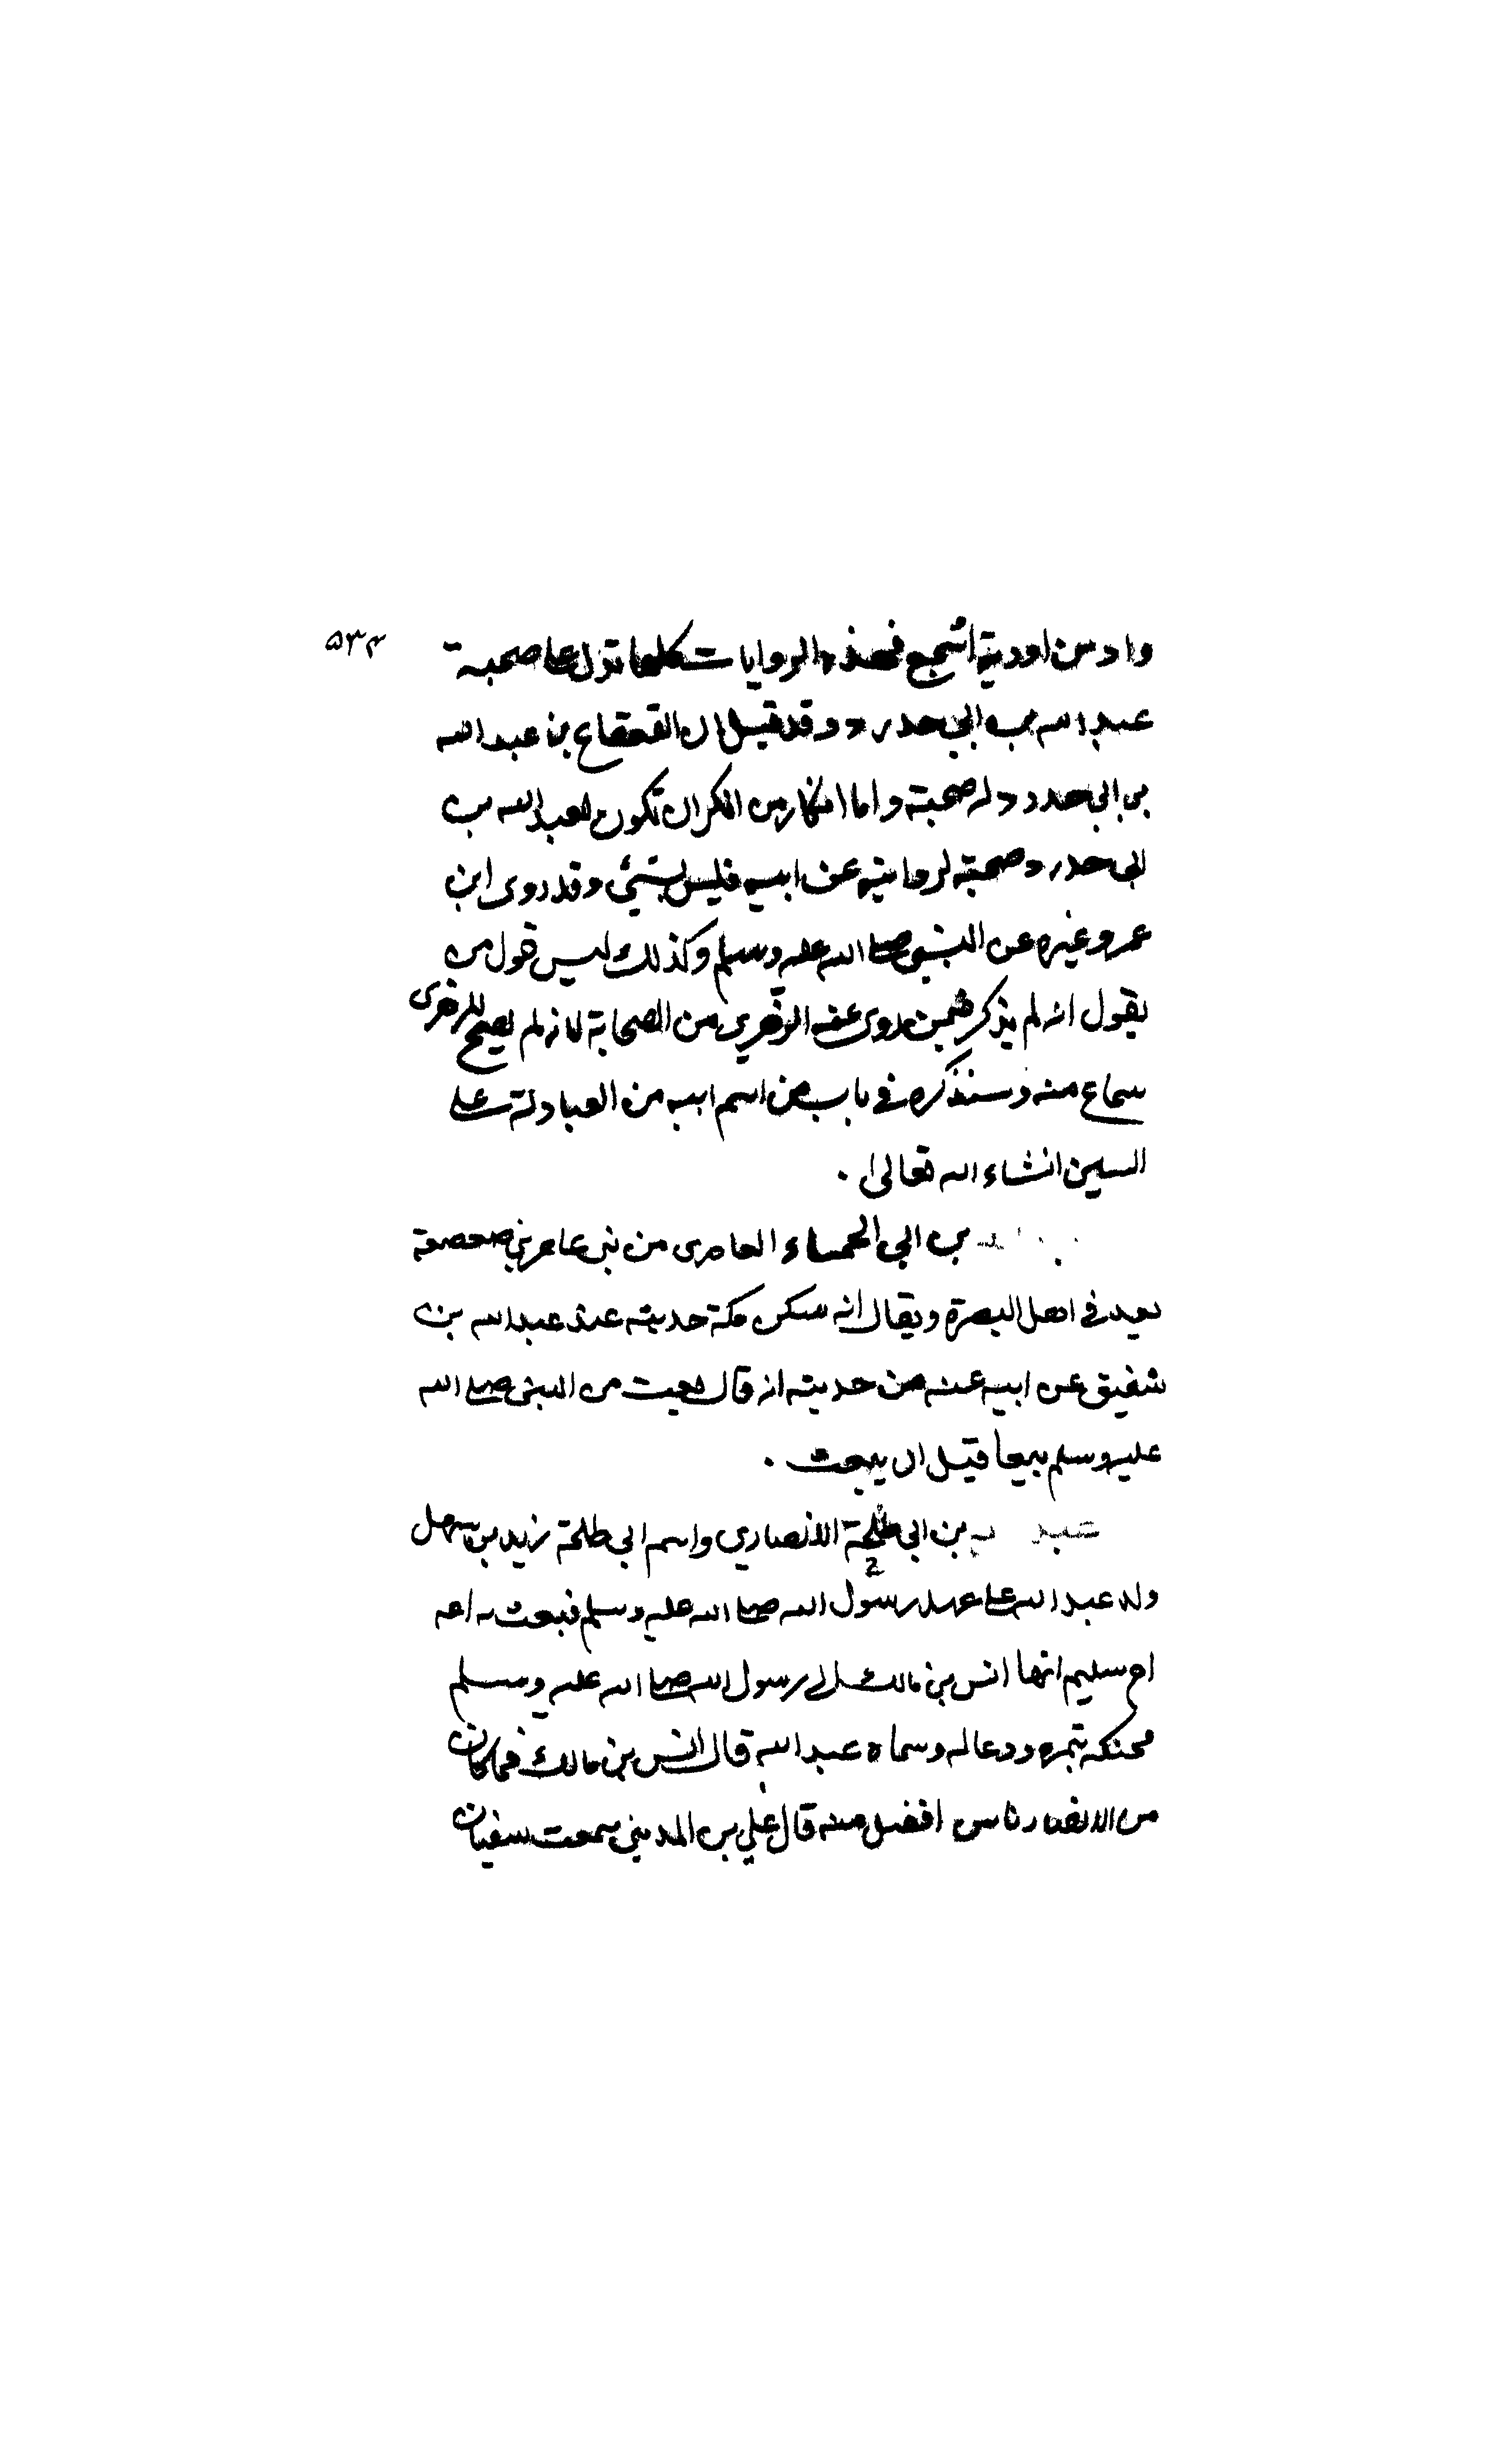 ٥٣٤
واد من اودية اشجع فهذه الروايات كلها تدل على صحبة
عبد الله بن ابي حدرد وقد قيل ان القعقاع بن عبد الله
بن ابي حدرد له صحبة واما انكار من انكر ان تكون لعبد الله بن
ابي حدرد صحبة لروايته عن ابيه فليس بشيئ وقد روى ابن
عمر وغيره عن النبي صلى الله عليه وسلم وكذلك ليس قول من
يقول انه لم يذكر فيمن روى عنه الزهري من الصحابة لانه لم يصح للزهرى
سماع منه وسنذكره في باب من اسم ابيه من العبادلة على
السين انشاء الله تعالى .
بن ابي الحمساء العامرى من بنى عامر بن صعصعة
يعد في اهل البصرة ويقال انه سكن مكة حديثه عند عبد الله بن
شقيق عن ابيه عنه من حديثه انه قال بعت من النبى صلى الله
عليه وسلم بيعا قبل ان يبعث .
عبد بن ابي طلحة الانصاري واسم ابي طلحة زيد بن سهل
ولد عبد الله على عهد رسول الله صلى الله عليه وسلم فبعث به امه
ام سليم ابنها انس بن مالك الى رسول الله صلى الله عليه وسلم
فحنكه بتمرة ودعا له وسماه عبد الله قال انس بن مالك فما كان
من الانصار ناس افضل منه قال علي بن المديني سمعت سفيان